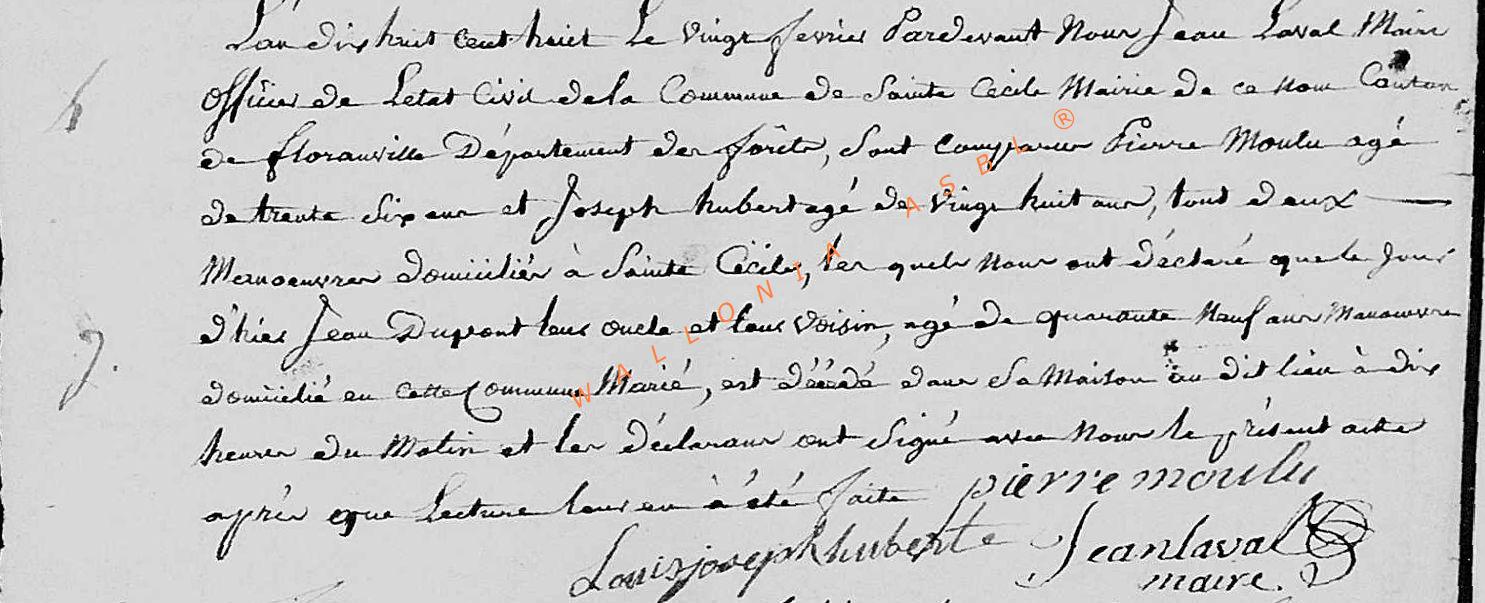 L'an dix huit cent huit Le vingt fevrier Pardevant Nous Jean Laval Maire
officier de Letat Civil de la Commune de Sainte Cecile Mairie de ce nom Canton
de floranville Département des forêts, sont comparus Pierre Moulu agé
de trente six ans et Joseph hubert agé de vingt huit ans, tout deux
Manoeuvres domiciliés à Sainte Cécile, les quels nous ont déclaré que le jour
d'hier Jean Dupont leur oncle et leur voisin, agé de quarante neuf ans Manoeuvre
domicilié en cette Commune Marié, est décédé dans sa Maison au dit lieu à dix
heures du Matin et les déclarans ont signé avec Nous le présent acte
après que Lecture leur en à été faite pierre moulu
Louis joseph huberte Jean laval
maire.
h
g.
WALLONIA ASBL ®